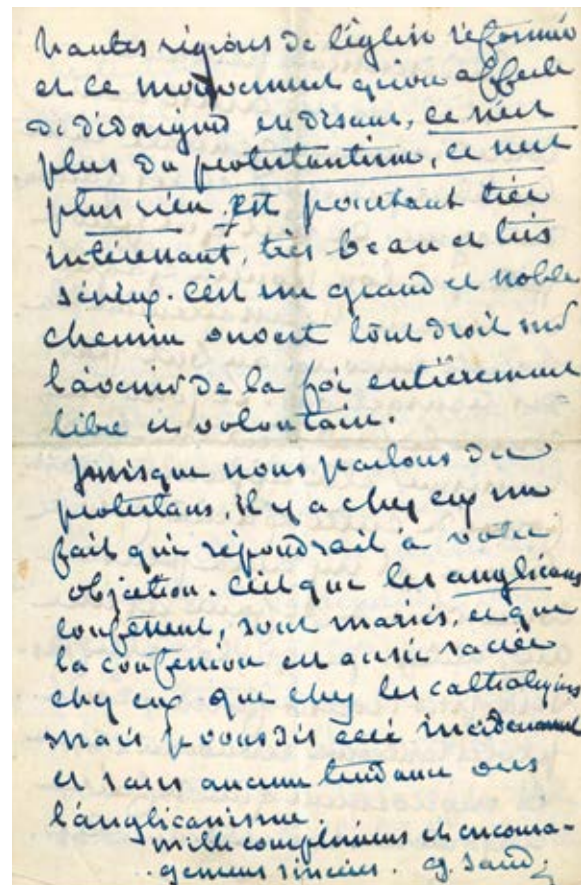 hautes régions de l'église réformée
et ce mouvement qu'on affecte
de dédaigner en disant, ce n'est
plus du protestantisme, ce n'est
plus rien, est pourtant très
intéressant, très beau et très
sérieux. C'est un grand et noble
chemin ouvert tout droit sur
l'avenir de la foi entièrement
libre et volontaire.
puisque nous parlons des
protestans, il y a chez eux un
fait qui répondrait à votre
objection. C'est que les anglicans
confessent, sont mariés, et que
la confession est aussi sacrée
chez eux que chez les catholiques
mais je vous dis ceci incidemment
et sans aucune tendance vers
l'anglicanisme.
mille complimens et encoura-
gemens sincères. G. Sand